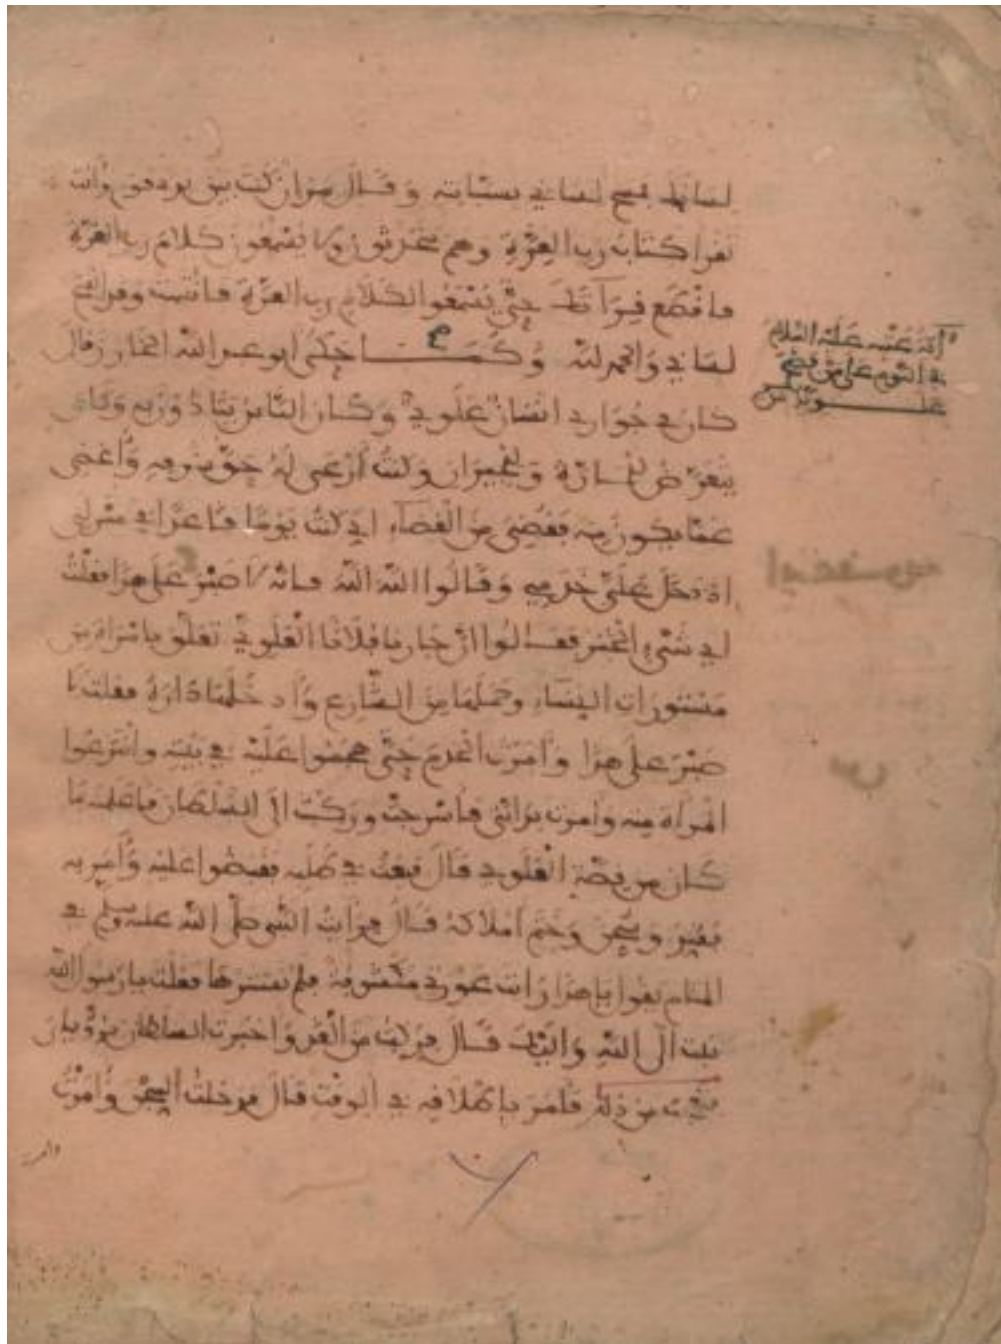 لسانك فمسح لساني بسبابته وقال مر ان كنت بين يدي قوم وأنت
تقرأ كتاب رب العزة وهم يتحدثون ولا يسمعون كلام رب العزة
فاقطع قراءتك حتى يسمعوا الكلام رب العزة فانتبهت وقد انفتح
لساني والحمد لله وكما حكى ابو عبد الله الخباز قال
كان في جواري انسان علوي وكان الناس يتأذون به وكان
يتعرض للمارة والجيران وكنت أرعى له حق شرفه وأغضي
عما يكون منه فقضي من القضاء اني كنت يوما قاعدا في منزلي
اذ دخل علي خدمي وقالوا الله الله فانه لا صبر على هذا فقلت
اي شيء الخبر فقالوا ان جارنا فلانا العلوي تعلق بامرأة من
مستورات النساء وحملها من الشارع وأدخلها داره فقلت لا
صبر على هذا وأمرت الخدم حتى هجموا عليه في بيته وانتزعوا
المرأة منه وامرت بدابتي فأسرجت وركبت الى السلطان فأعلمته ما
كان من قصة العلوي قال فبعث في طلبه فقبضوا عليه وأمر به
فقيد وسجن وختم أملاكه قال فرأيت النبي صلى الله عليه وسلم في
المنام يقول يا هذا رأيت عورة مكشوفة فلم تسترها فقلت يا رسول الله
تبت الى الله واليك قال فركبت من الغد واخبرت السلطان برؤياي
من ذلك فأمر بإطلاقه في الوقت قال فدخلت السجن وأمرت
عليه السلام
في النوم على من
علوي